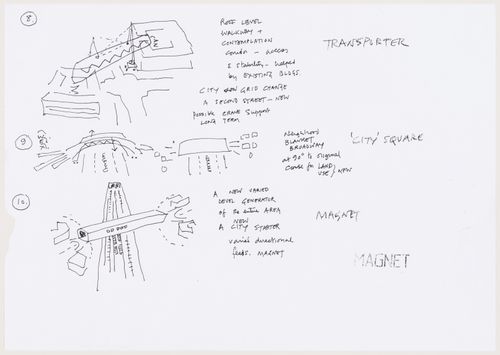 8
ROOF LEVEL
WALKWAY +
CONTEMPLATION
& stability - helped
by EXISTING BLDGS.
TRANSPLETER
CITY GRID CHANGE
A SECOND STREET - NEW
possible CRANE support
LONG TERM
9
NEIGHBORS
BLANKET
BROADWAY
at 90° to original
Cause for LAND
USE / NEW
'CITY' SQUARE
10
A NEW VARIED
LEVEL GENERATOR
of the entire AREA
NEW
A CITY STARTER
varied directional
feeds. MAGNET
MAGNET
MAGNET